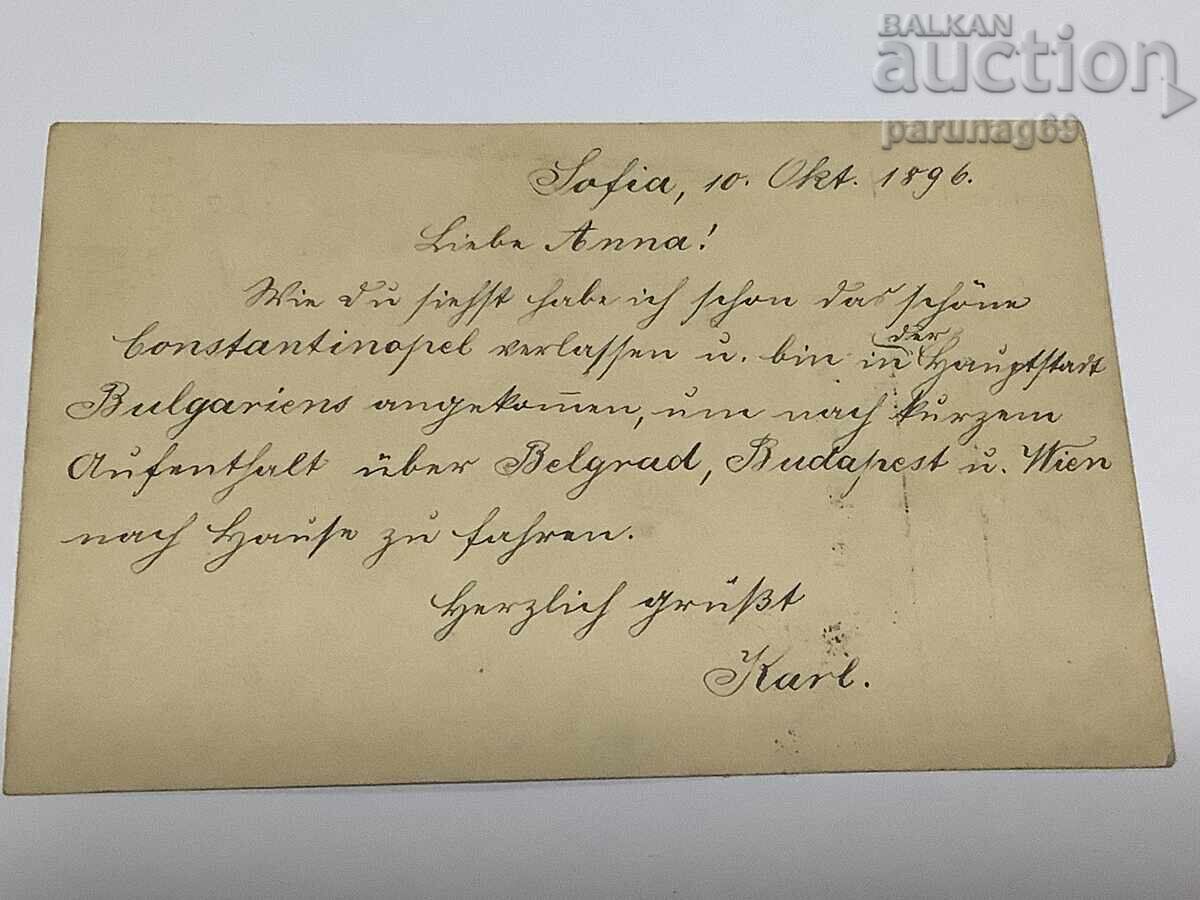 BALKAN
auction
parunag69
Sofia, 10. Okt. 1896.
Liebe Anna!
Wie Du siehst habe ich schon das schöne
Constantinopel verlassen u. bin in der Hauptstadt
Bulgariens angekom̅en, um nach kurzem
Aufenthalt über Belgrad, Budapest u. Wien
nach Hause zu fahren.
Herzlich grüßt
Karl.